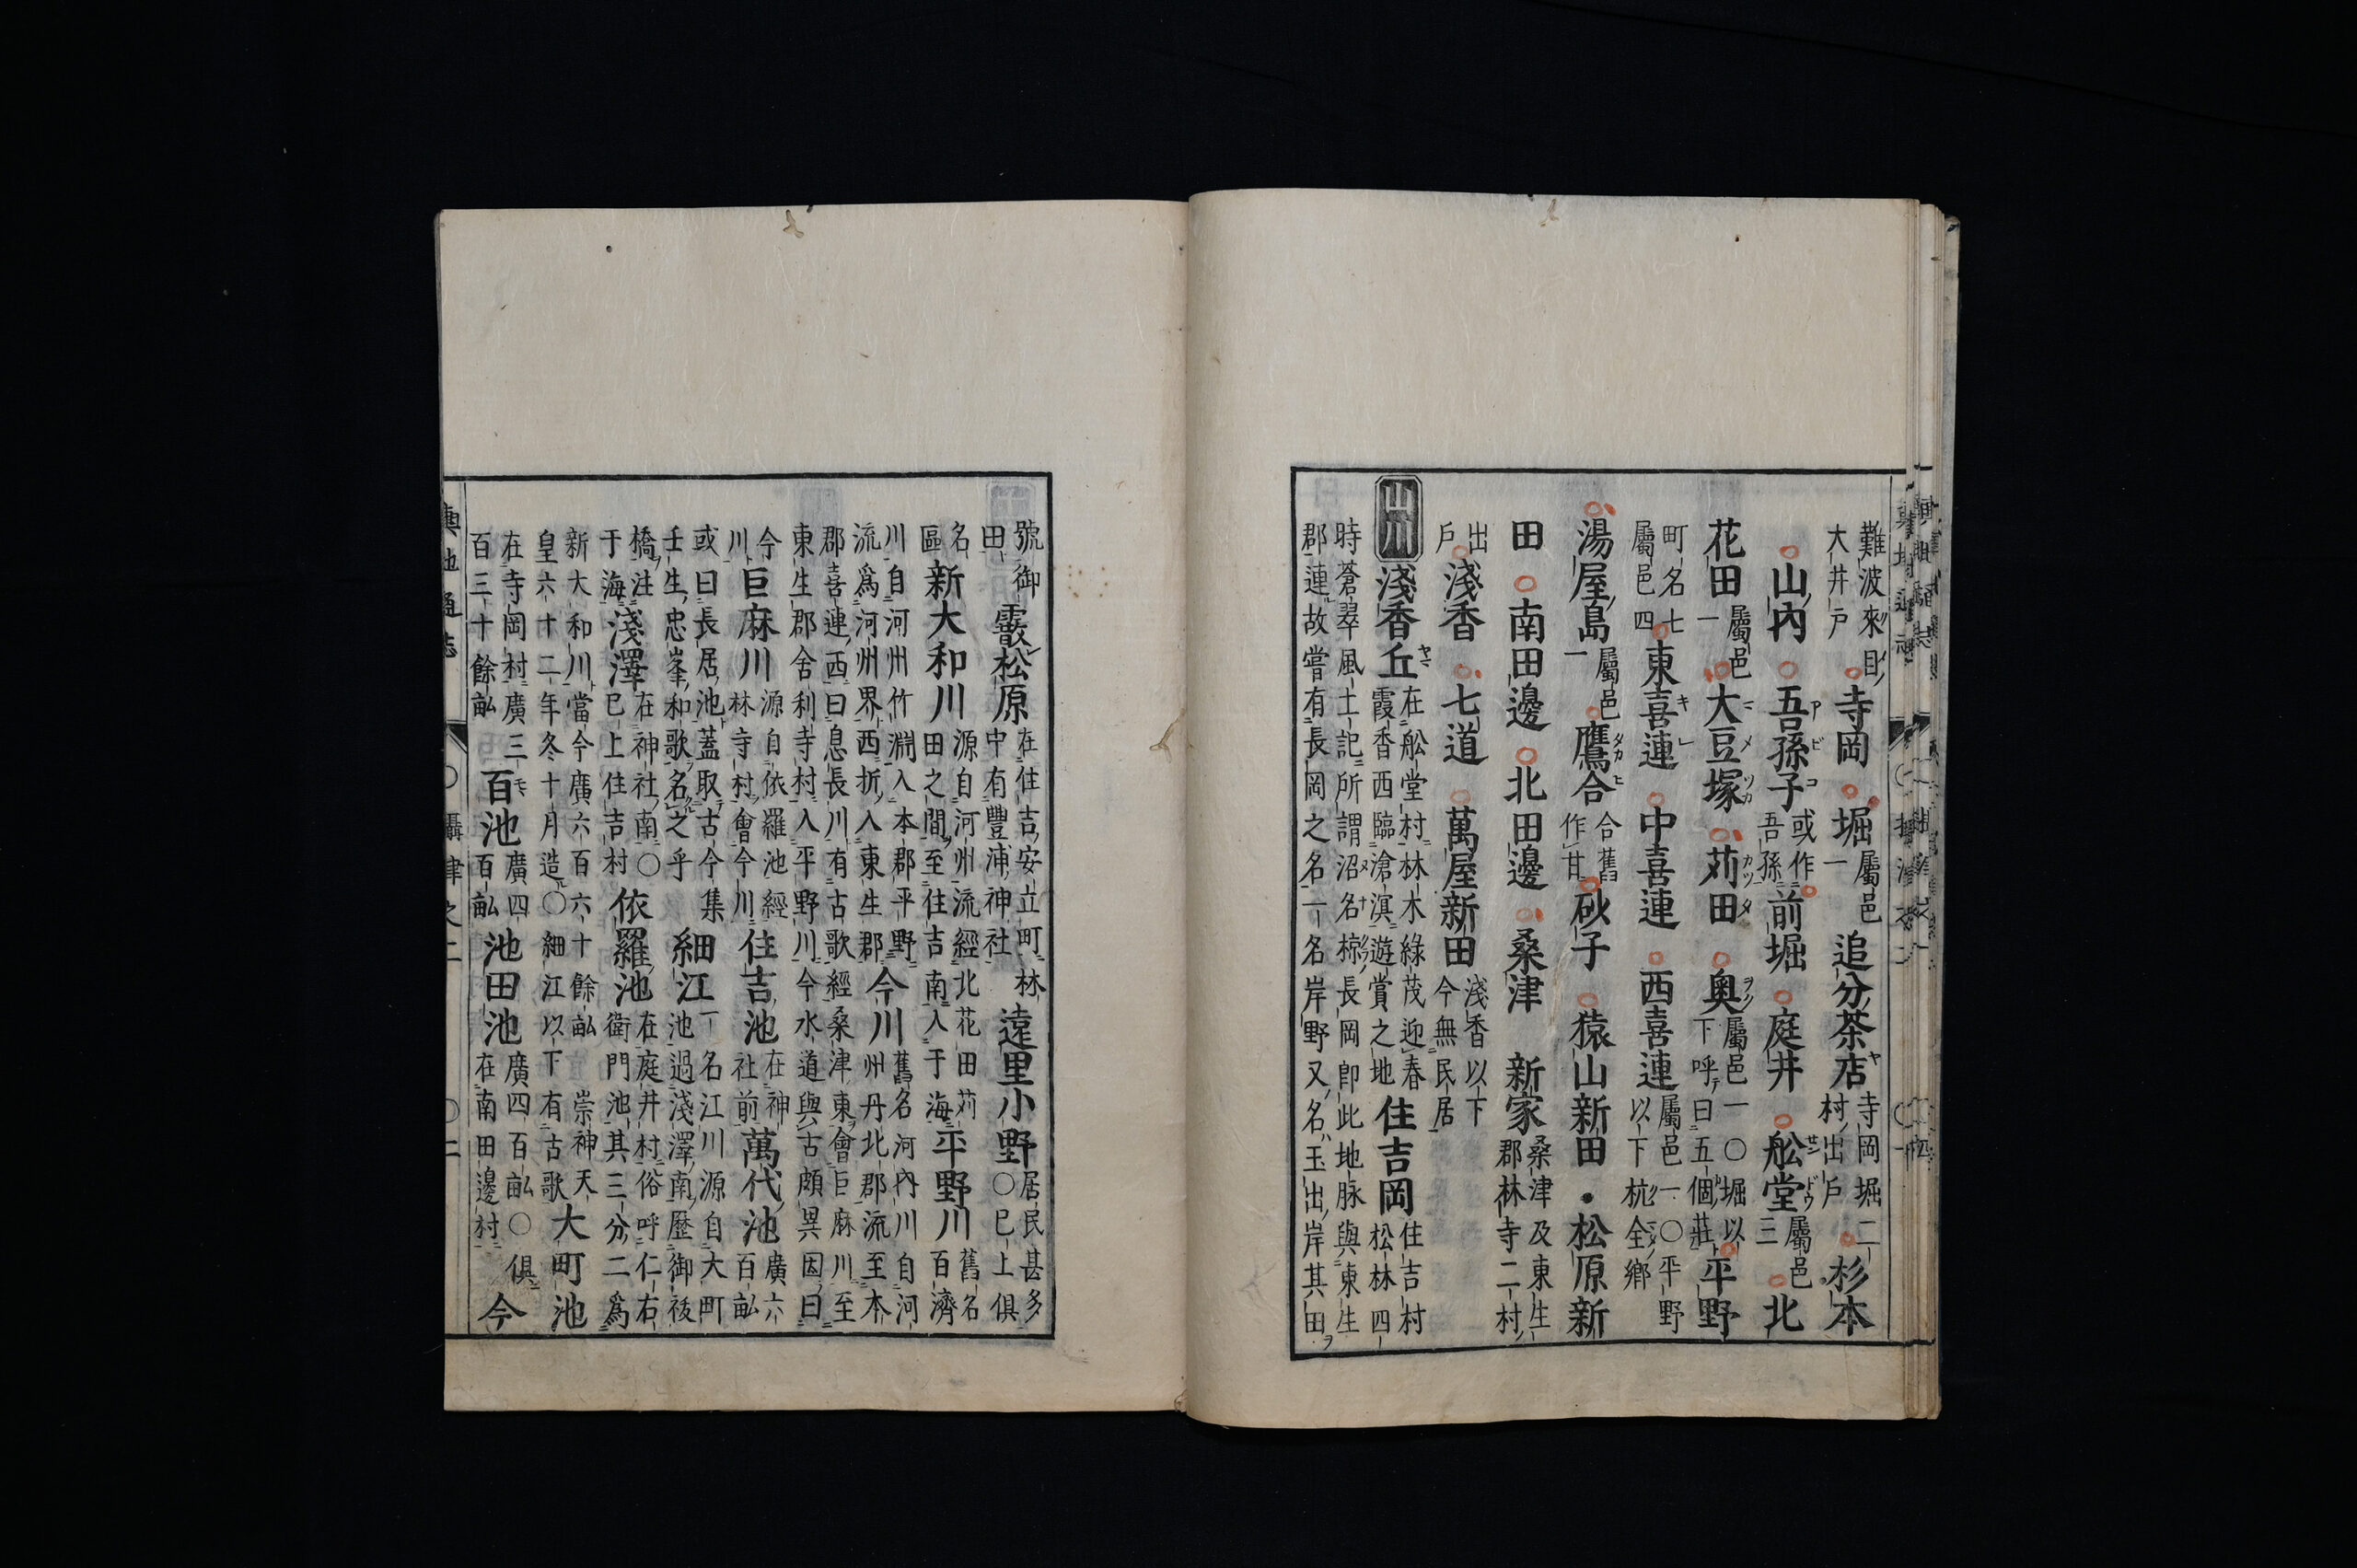 難波來目
大井戶
寺岡 堀 屬邑一 追分茶店 寺岡堀二村出戶 杉本
山內 吾孫子 或作吾孫 前堀 庭井 舩堂 屬邑三 北
花田 屬邑一 大豆塚 苅田 奧 屬邑一〇堀以下呼曰五個莊 平野
町名七屬邑四 東喜連 中喜連 西喜連 屬邑一〇平野以下杭全鄉
湯屋島 屬邑一 鷹合 合舊作甘 砂子 猿山新田・松原新
田 南田邊 北田邊 桑津 新家 桑津及東生郡林寺二村
出戶 淺香 七道 萬屋新田 淺香以下今無民居
山 淺香丘 在舩堂村林木綠茂迎春霞香西臨滄溟遊賞之地 住吉岡 住吉村松林四
時蒼翠風土記所謂沼名椋長岡即此地脉與東生
郡連故嘗有長岡之名一名岸野又名玉出岸其田
號御田 霰松原 在住吉安立町林中有豐浦神社 遠里小野 居民甚多〇已上俱
名區 新大和川 源自河州流經北花田苅田之間至住吉南入于海 平野川 舊名百濟
川自河州竹淵入本郡平野流爲河州界西折入東生郡 今川 舊名河內川自河州丹北郡流至本
郡喜連西曰息長川有古歌經桑津東會巨麻川至
東生郡舍利寺村入平野川今水道與古頗異因曰
今川 巨麻川 源自依羅池經林寺村會今川 住吉池 在神社前 萬代池 廣六百畝
或曰長居池蓋取古今集壬生忠岑和歌名之乎 細江 一名江川源自大町池過淺澤南歷御祓
橋注于海 淺澤 在神社南〇已上住吉村 依羅池 在庭井村俗呼仁右衛門池其三分二爲
新大和川當今廣六百六十餘畝 崇神天皇六十二年冬十月造〇細江以下有古歌 大町池
在寺岡村廣三百三十餘畝 百池 廣四百畝 池田池 廣四百畝〇俱在南田邊村 今
輿地通志 攝津之二 二